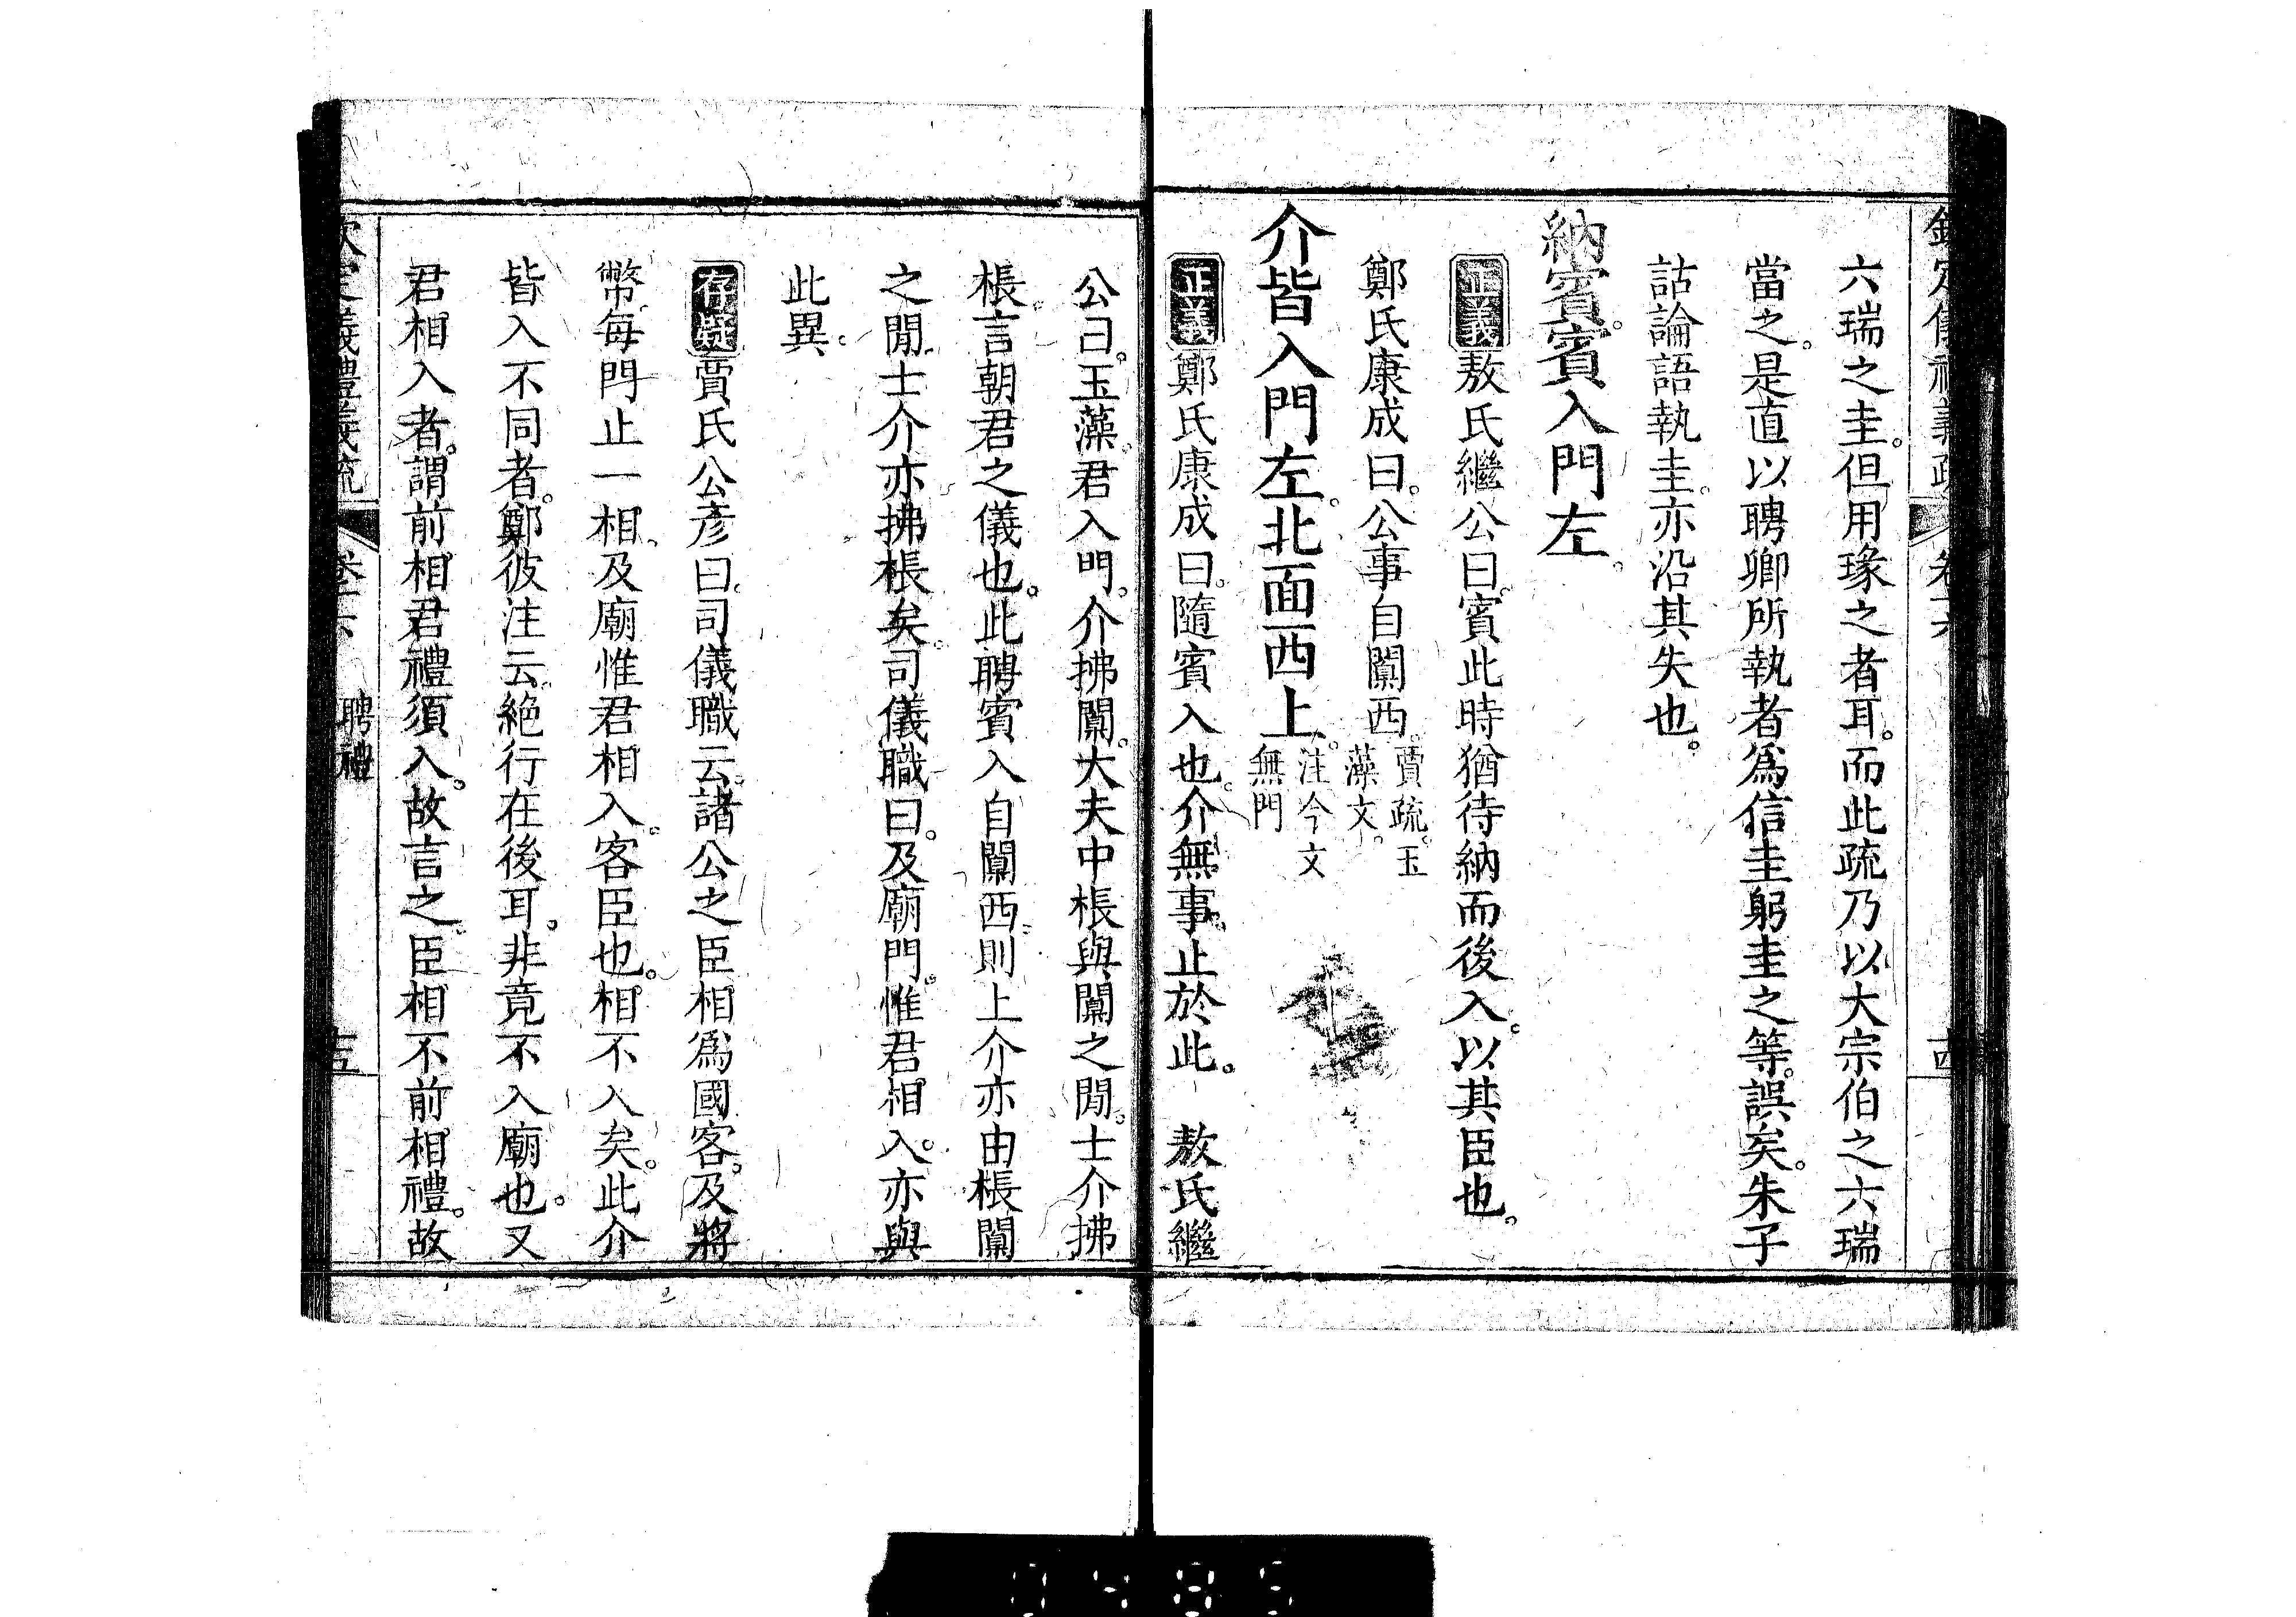 六瑞之圭。但用瑑之者耳。而此疏乃以大宗伯之六瑞
當之。是直以聘卿所執者爲信圭躬圭之等。誤矣。朱子
詁論語執圭。亦沿其失也。
納賓。賓入門左。
正義敖氏繼公曰。賓此時猶待納而後入。以其臣也。
鄭氏康成曰。公事自闑西。賈疏。玉
藻文。
介皆入門左。北面西上。注今文
無門
正義鄭氏康成曰。隨賓入也。介無事。止於此。 敖氏繼
公曰。玉藻。君入門。介拂闑。大夫中棖與闑之閒。士介拂
棖。言朝君之儀也。此聘賓入自闑西。則上介亦由棖闑
之閒。士介亦拂棖矣。司儀職曰。及廟門。惟君相入。亦與
此異。
存疑賈氏公彥曰。司儀職云。諸公之臣相爲國客。及將
幣。每門止一相。及廟惟君相入。客臣也。相不入矣。此介
皆入不同者。鄭彼注云。絶行在後耳。非竟不入廟也。又
君相入者。謂前相君禮須入。故言之。臣相不前相禮。故
欽定儀禮義疏 卷十六 聘禮